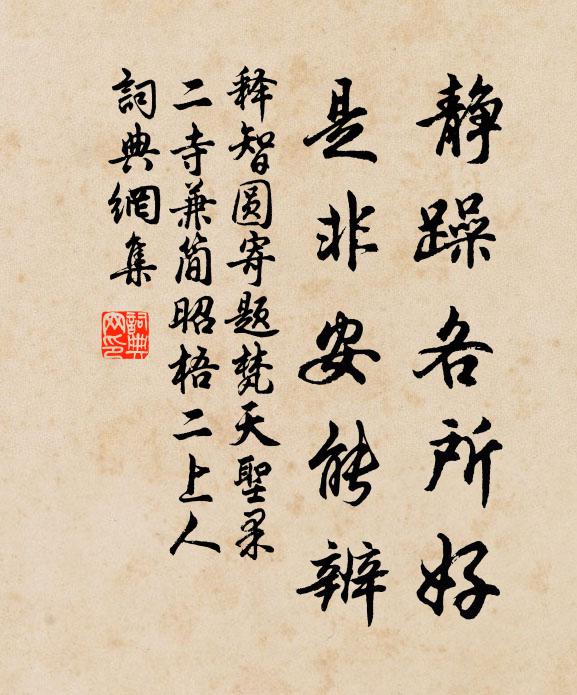 静躁各所好
是非安能辨
释智圆寄题梵天聖果
二寺兼简昭梧二上人
词典網集
詞典
网印